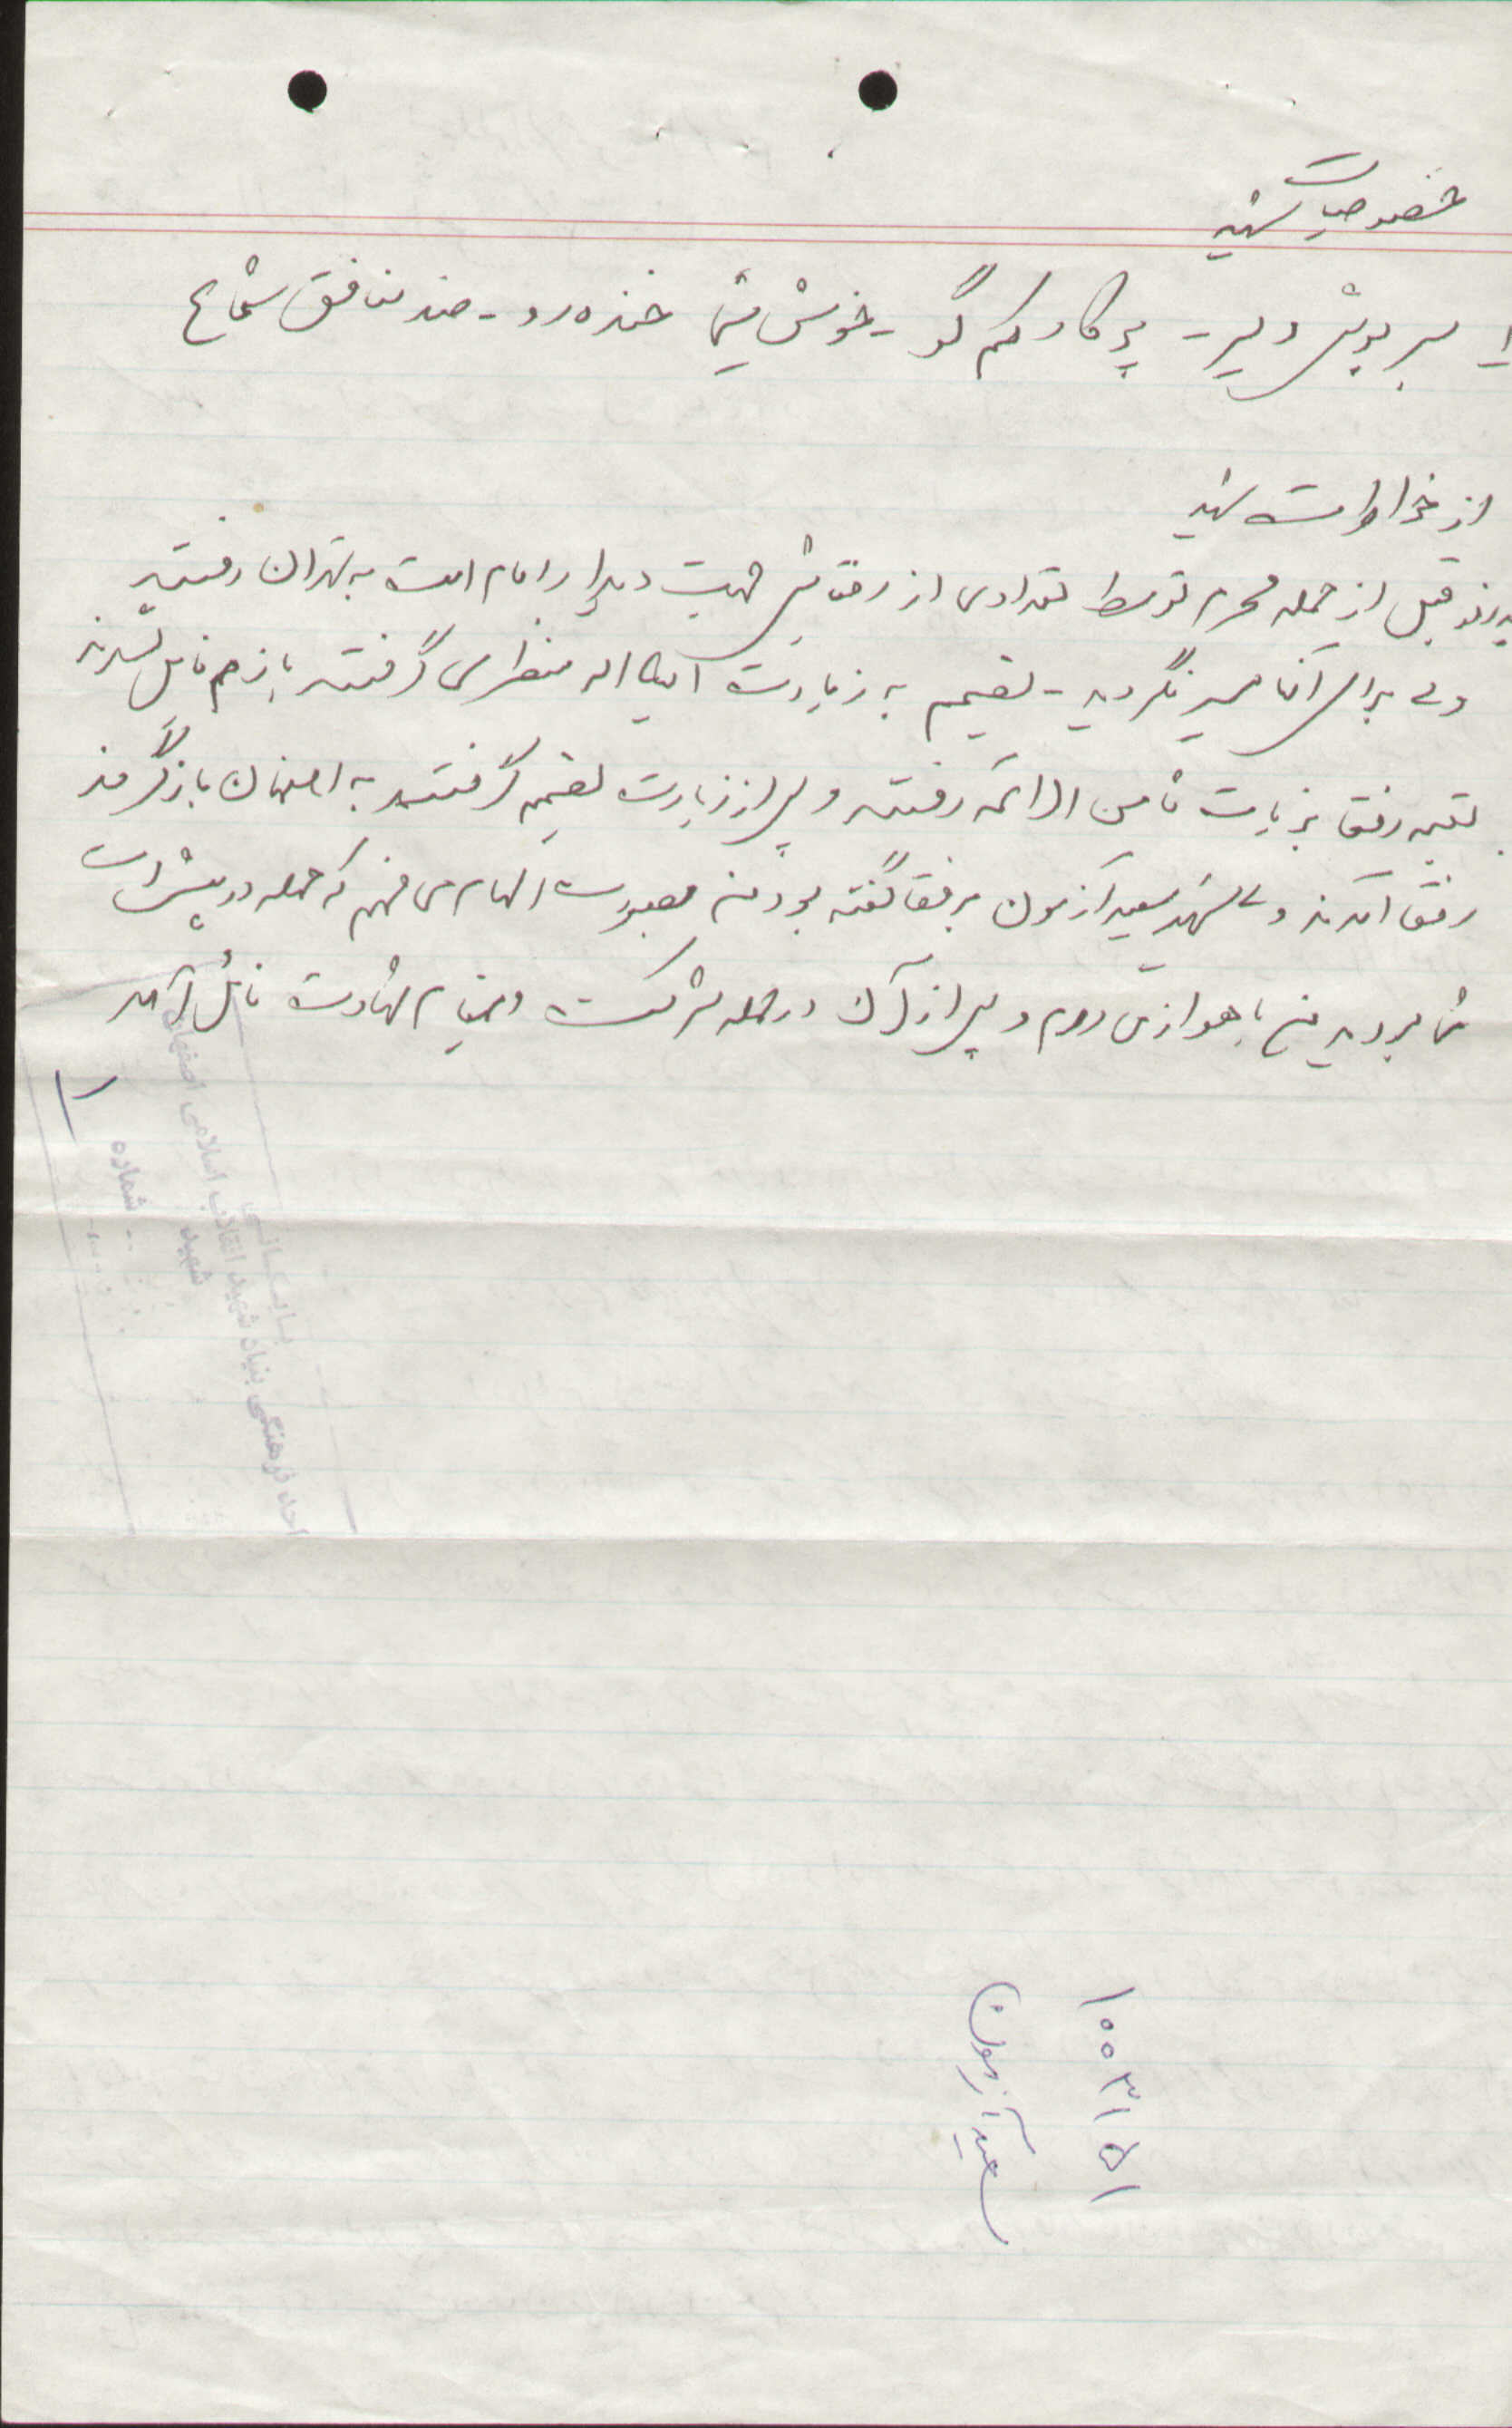 خصوصیات شهید
۱ـ سربزیر و لیر - پرکار و کم گو - خوش تیپ خنده رو - ضد منافق شجاع
از خواطرات شهید
روز قبل از حمله محرم توسط تعدادی از رفقایش جهت دیدار امام امت به تهران رفتند
ولی برای آنها میسر نگردید - تصمیم به زیارت آیت اله منتظری گرفتند باز هم نایل نشدند
بقیه رفقا بزیارت ثامن الائمه رفتند و پس از زیارت تصمیم گرفتند به اصفهان بازگردند
رفقا آمدند ولی شهید سعید آزمون برفقا گفته بود من بصورت الهام می فهمم که حمله در پیش است
شما بروید من باهواز می روم و پس از آن در حمله شرکت و بمقام شهادت نائل آمد
بایگانی
واحد فرهنگی بنیاد شهید انقلاب اسلامی اصفهان
شهید
شماره
۱۰۰۳۱۵۱
سعید آزمون